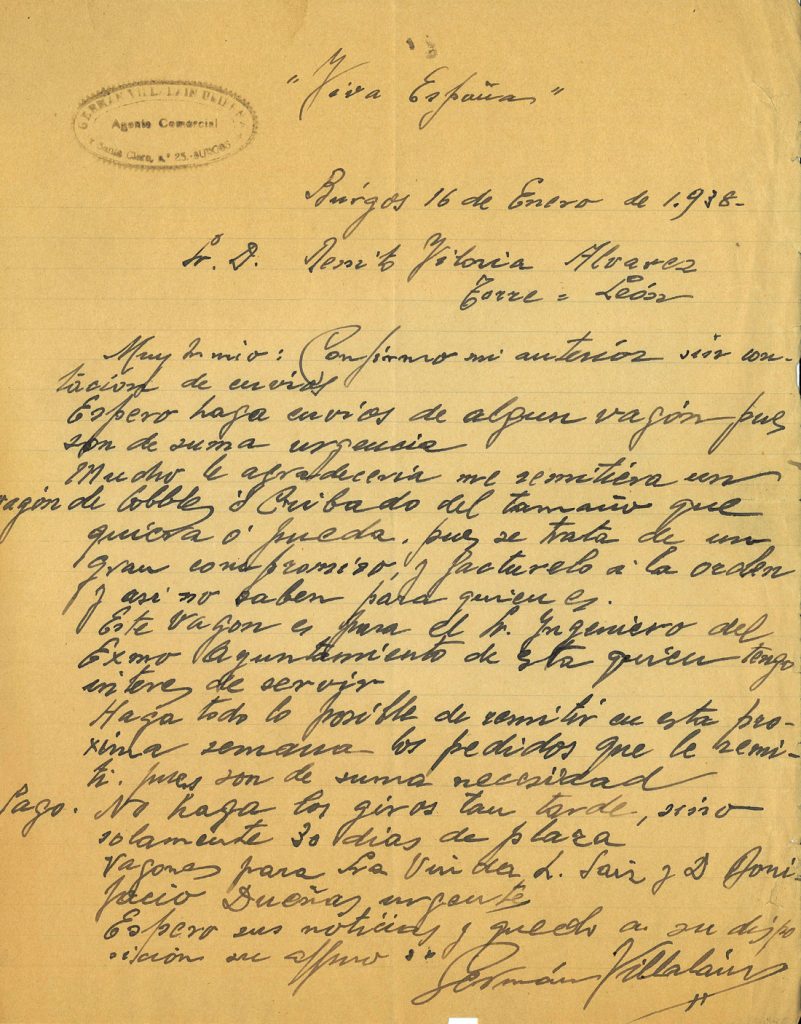 GERMAN VILLALAIN
Agente Comercial
Santa Clara, n.º 25.-BURGOS
"Viva España"
Búrgos 16 de Enero de 1.938-
Sr. D. Benito Viloria Alvarez
Torre = León
Muy Sr mio: Confirmo mi anterior sin con-
tación de envios
Espero haga envios de algun vagón pues
son de suma urgencia
Mucho le agradeceria me remitiera un
vagón de Cobbles ó Cribado del tamaño que
quiera ó pueda. pues se trata de un
gran compromiso, y facturelo á la orden
y asi no saben para quien es.
Este Vagon es para el Sr. Ingeniero del
Exmo Ayuntamiento de esta quien tengo
interes de servir
Haga todo lo posible de remitir en esta pro-
xima semana los pedidos que le remi-
ti. pues son de suma necesidad
Pago. No haga los giros tan tarde, sino
solamente 30 dias de plaza
Vagones para Sra Viuda L. Saiz y D Boni-
facio Dueñas, urgente
Espero sus noticias y quedo a su dispo
sición su affmo ss
Germán Villalaín